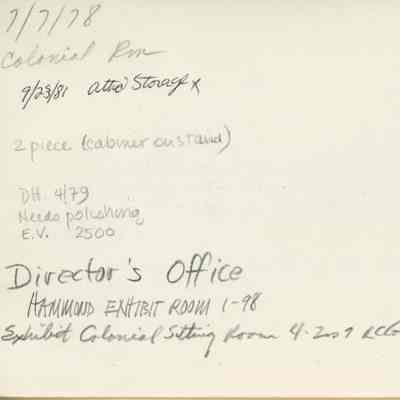 7/7/78
Colonial Rm
9/23/81 attic Storage x
2 piece (cabinet on stand)
DH. 4/79
Needs polishing
E.V. 2500
Director's Office
HAMMOND EXHIBIT ROOM 1-98
Exhibit Colonial Sitting Room 4-2007